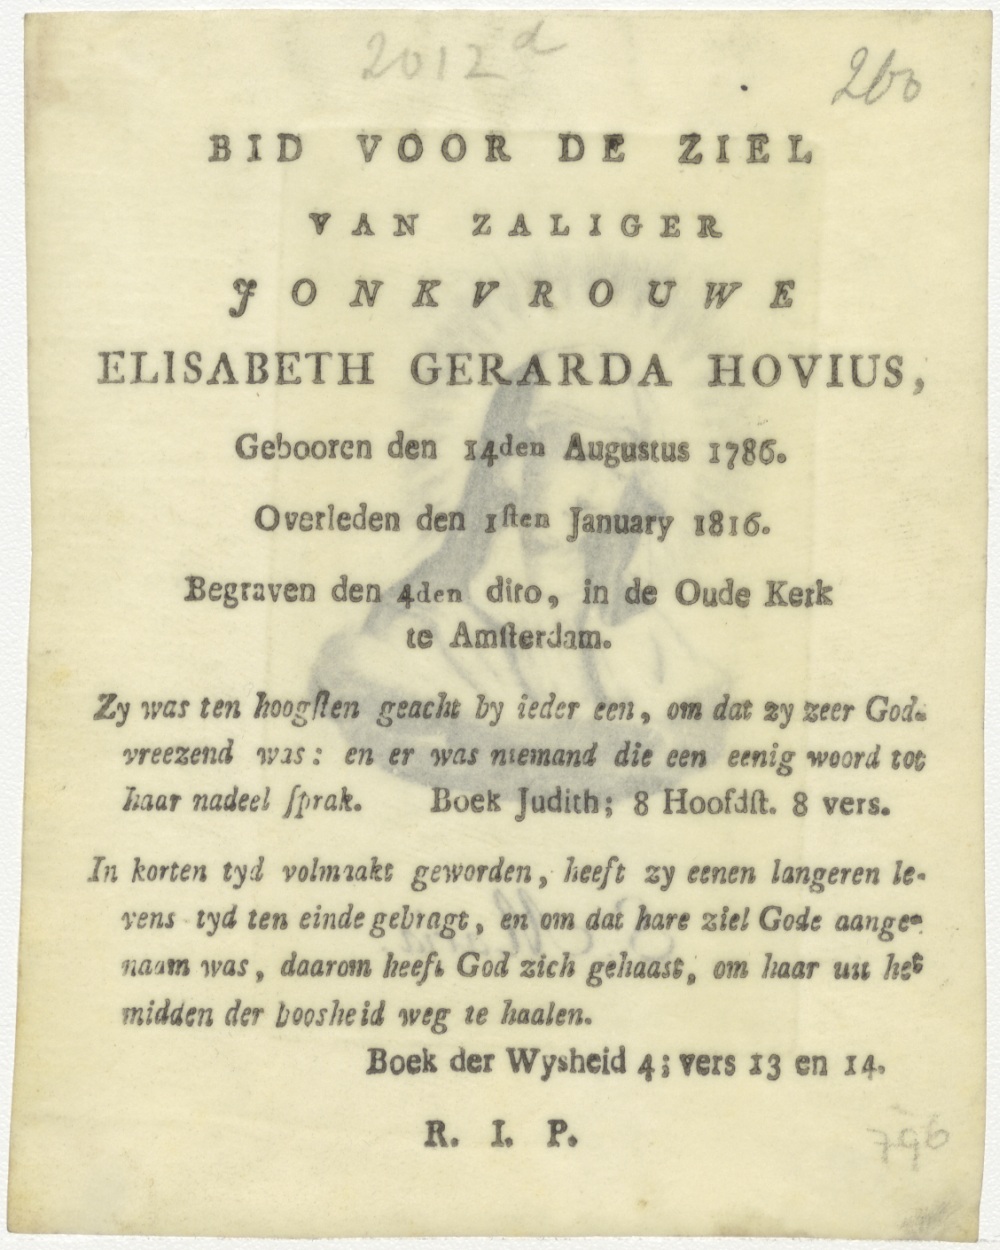 2012 d
260
BID VOOR DE ZIEL
VAN ZALIGER
JONKVROUWE
ELISABETH GERARDA HOVIUS,
Gebooren den 14den Augustus 1786.
Overleden den 1sten January 1816.
Begraven den 4den dito, in de Oude Kerk
te Amsterdam.
Zy was ten hoogsten geacht by ieder een, om dat zy zeer God-
vreezend was: en er was niemand die een eenig woord tot
haar nadeel sprak. Boek Judith; 8 Hoofdst. 8 vers.
In korten tyd volmaakt geworden, heeft zy eenen langeren le-
vens tyd ten einde gebragt, en om dat hare ziel Gode aange-
naam was, daarom heeft God zich gehaast, om haar uit het
midden der boosheid weg te haalen.
Boek der Wysheid 4; vers 13 en 14.
R. I. P.